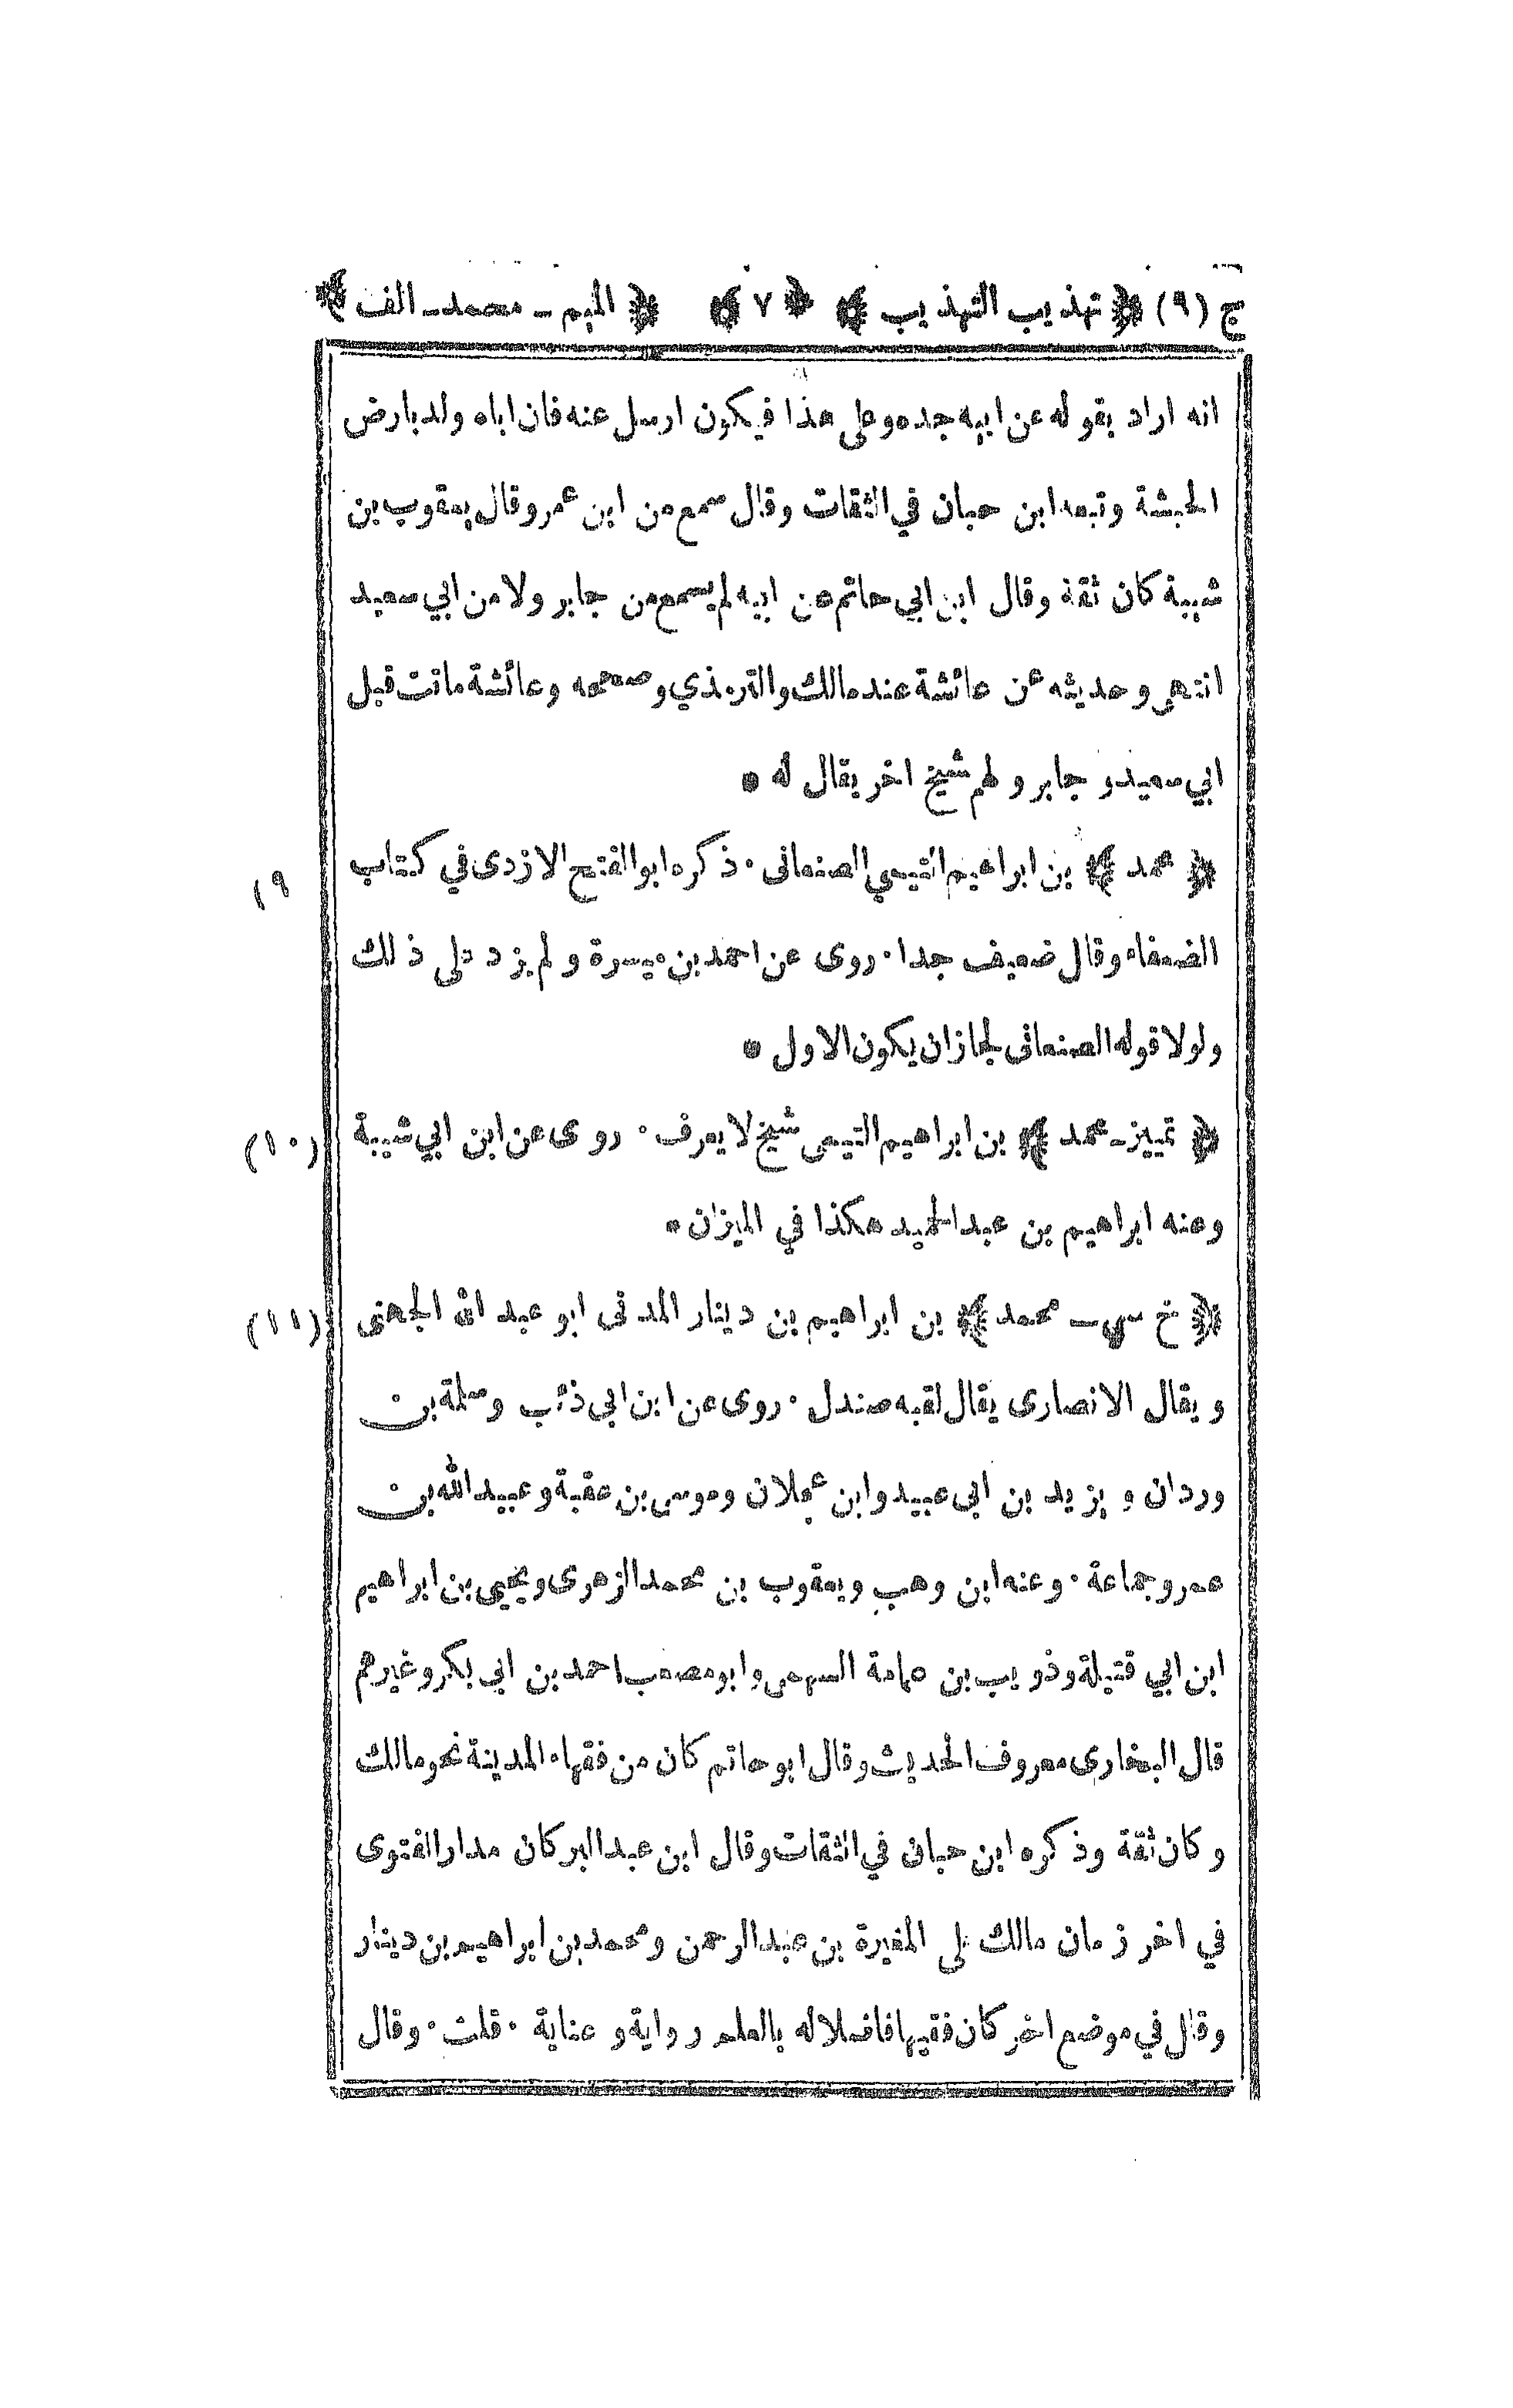 ج (٩) ﴿ تهذيب التهذيب ﴾ ﴿ ٧ ﴾ ﴿ الميم ـ محمد ـ الف ﴾
انه اراد بقوله عن ابيه جده وعلى هذا فيكون ارسل عنه فان اباه ولد بارض
الحبشة وتبعه ابن حبان في الثقات وقال سمع من ابن عمر وقال يعقوب بن
شيبة كان ثقة وقال ابن ابي حاتم عن ابيه لم يسمع من جابر ولا من ابي سعيد
انتهى وحديثه عن عائشة عند مالك والترمذي وصححه وعائشة ماتت قبل
ابي سعيد و جابر ولهم شيخ اخر يقال له *
﴿ محمد ﴾ بن ابراهيم التيمي الصنعانى · ذكره ابو الفتح الازدى في كتاب
٩)
الضعفاء وقال ضعيف جدا · روى عن احمد بن ميسرة ولم يزد على ذلك
ولولا قوله الصنعانى لجاز ان يكون الاول *
﴿ تمييز ـ محمد ﴾ بن ابراهيم التيمى شيخ لا يعرف · روى عن ابن ابي شيبة
(١٠)
وعنه ابراهيم بن عبد الحميد هكذا في الميزان *
﴿ خ سي ـ محمد ﴾ بن ابراهيم بن دينار المدنى ابو عبد الله الجهنى
(١١)
ويقال الانصارى يقال لقبه صندل · روى عن ابن ابي ذئب وسلمة بن
وردان و يزيد بن ابى عبيد وابن عجلان وموسى بن عقبة وعبيد الله بن
عمر وجماعة · وعنه ابن وهب ويعقوب بن محمد الزهرى ويحيى بن ابراهيم
ابن ابي قتيلة وذويب بن عمامة السهمى وابو مصعب احمد بن ابى بكر وغيرهم
قال البخارى معروف الحديث وقال ابو حاتم كان من فقهاء المدينة نحو مالك
وكان ثقة وذكره ابن حبان في الثقات وقال ابن عبد البر كان مدار الفتوى
في اخر زمان مالك على المغيرة بن عبد الرحمن ومحمد بن ابراهيم بن دينار
وقال في موضع اخر كان فقيها فاضلا له بالعلم رواية و عناية · قلت · وقال